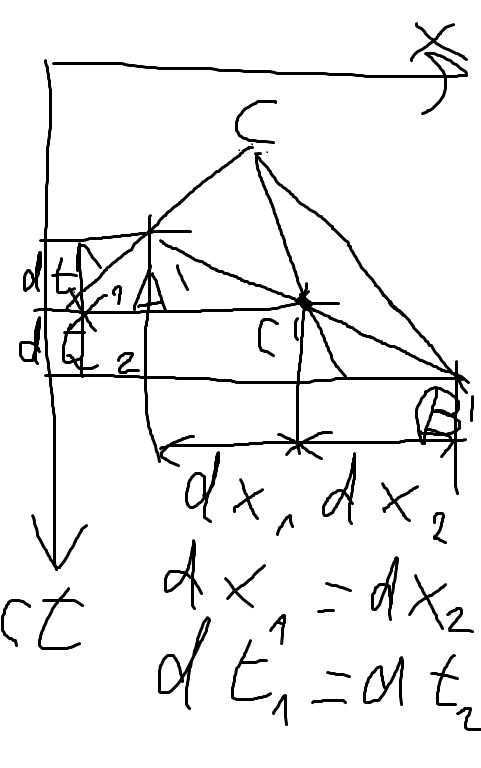 x
C
A'
dt₁
C'
dt₂
B'
dx₁ dx₂
ct
dx₁ = dx₂
dt₁ = dt₂